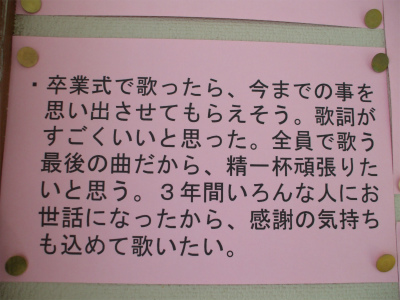 ・卒業式で歌ったら、今までの事を
思い出させてもらえそう。歌詞が
すごくいいと思った。全員で歌う
最後の曲だから、精一杯頑張りた
いと思う。３年間いろんな人にお
世話になったから、感謝の気持ち
も込めて歌いたい。